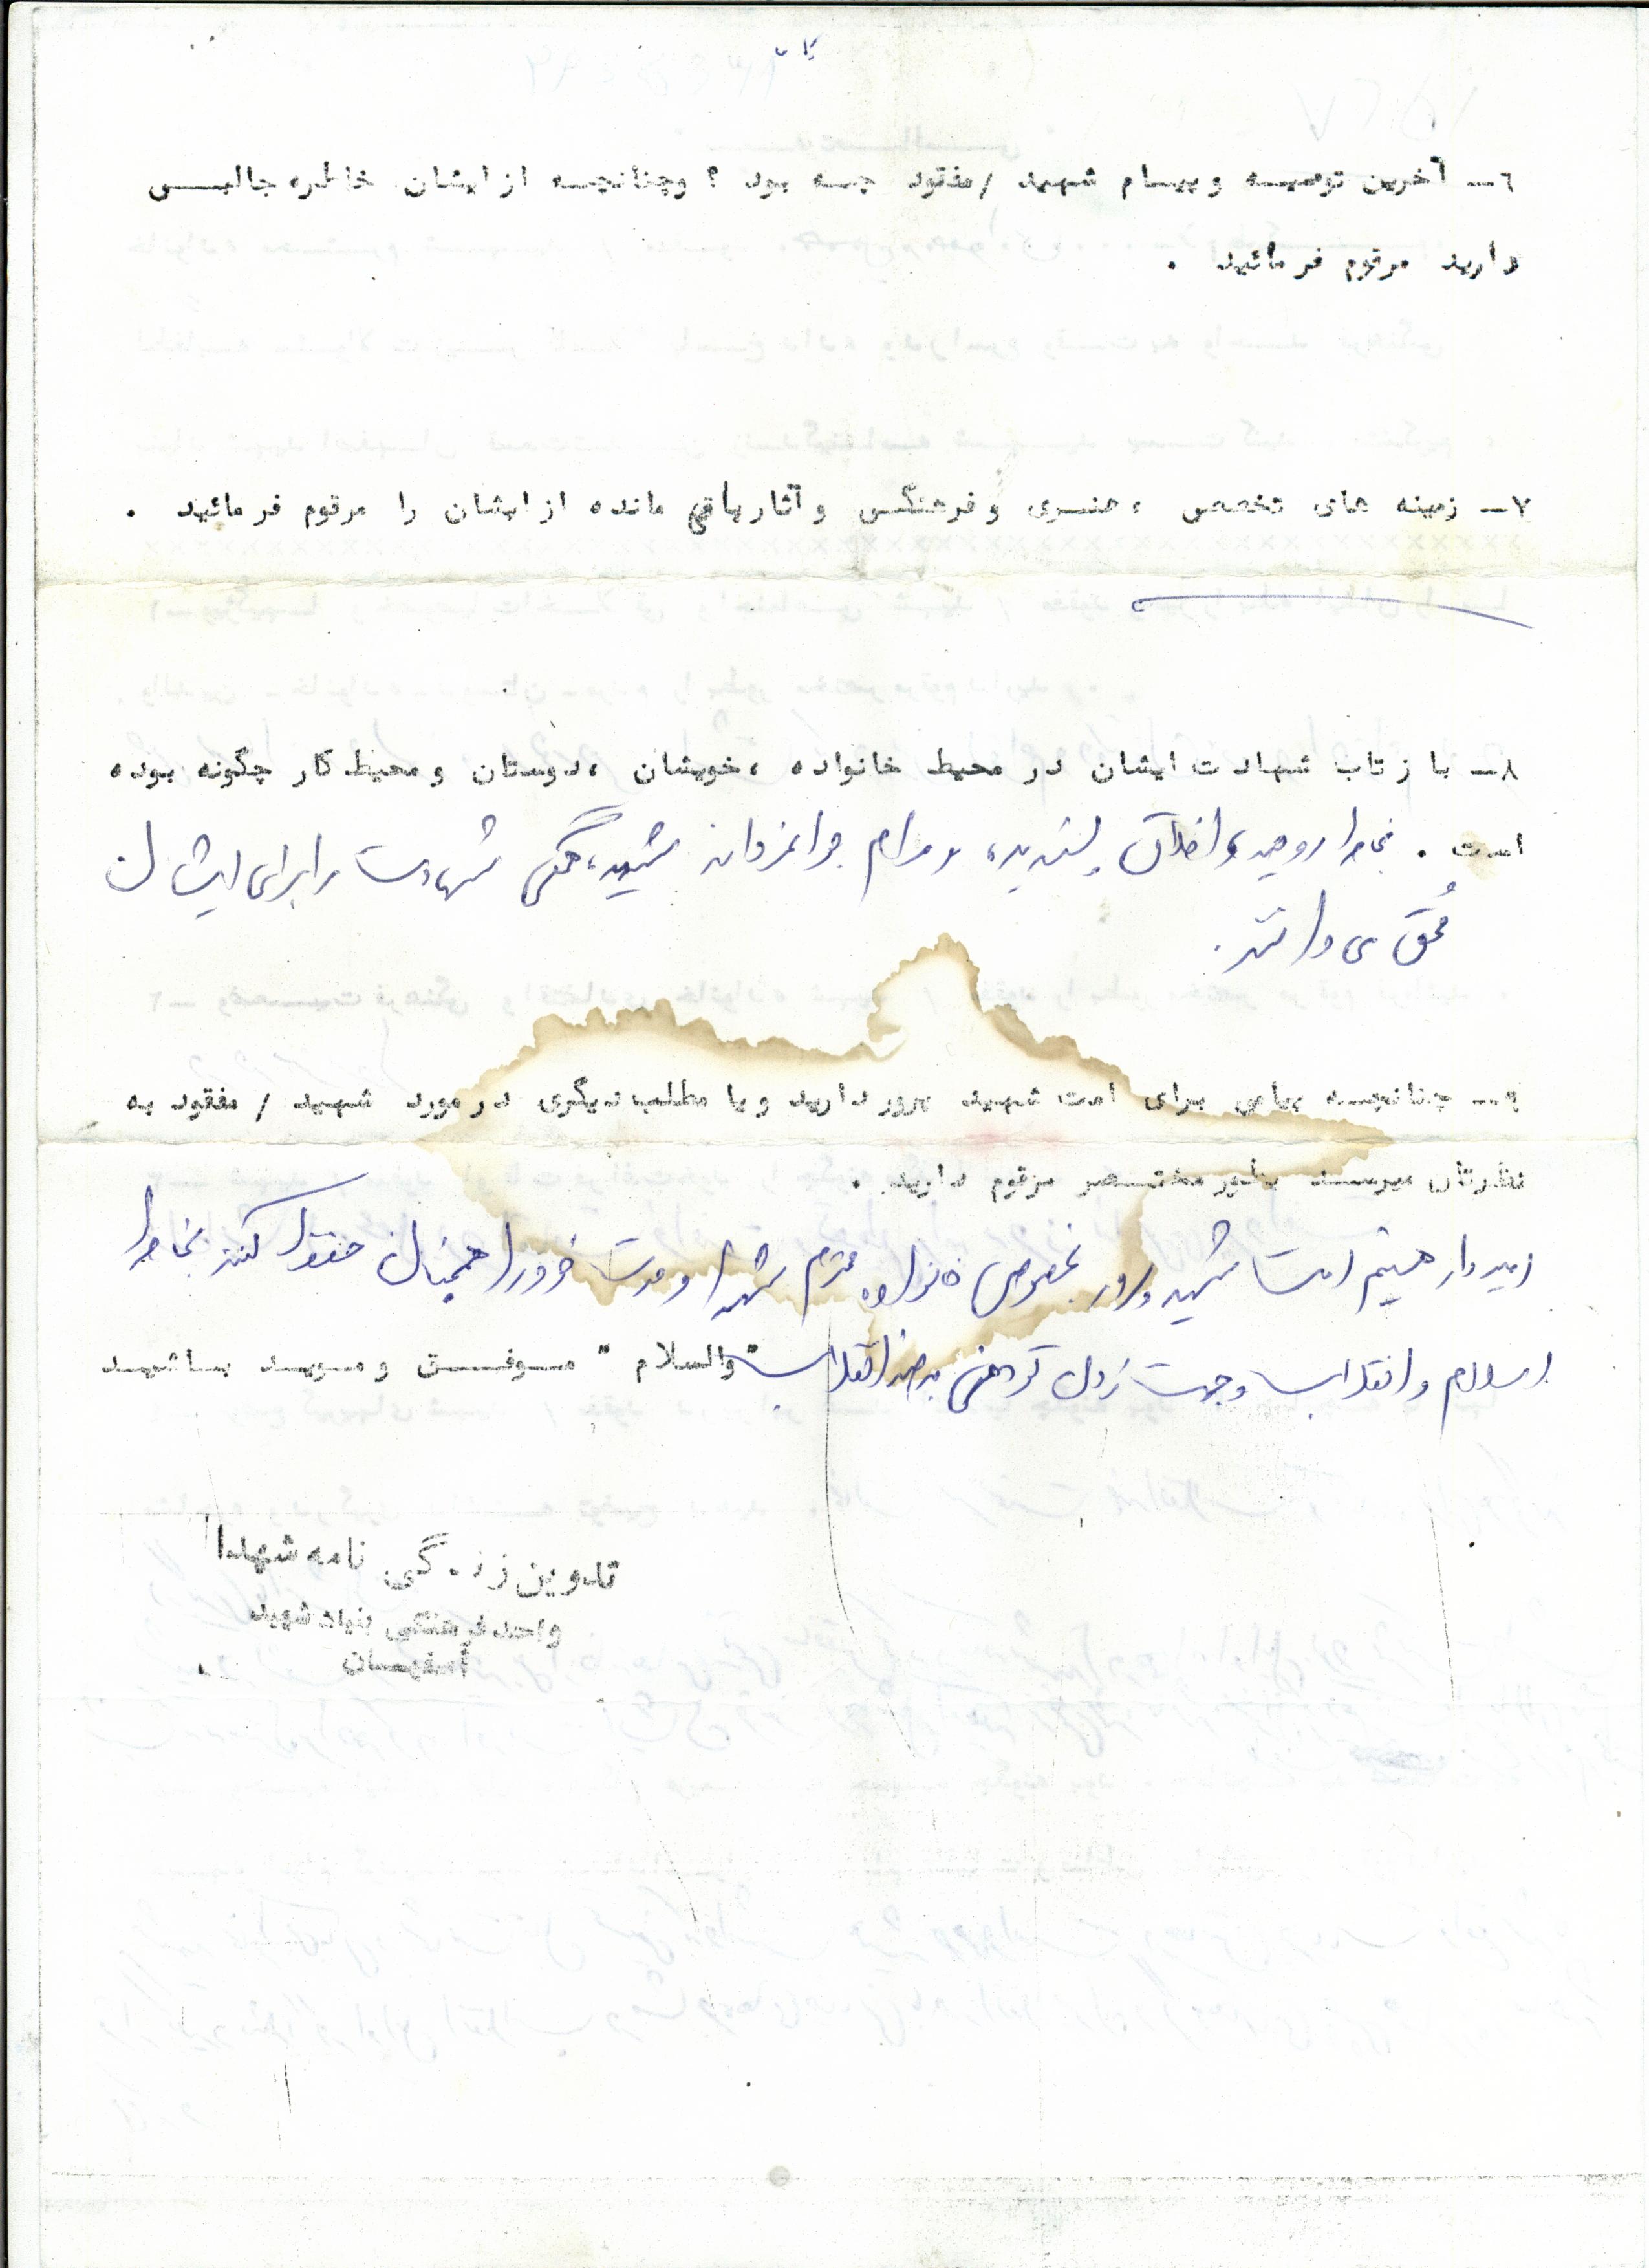 ٦ـ آخرین توصیـه و پیـام شهید /مفقود چـه بود ؟ وچنانچـه از ایشان خاطره جالبـی
دارید مرقوم فرمائید .
٧ـ زمینه های تخصصی ، هنـری و فرهنگی و آثار باقی مانده از ایشان را مرقوم فرمائید .
٨ـ بازتاب شهادت ایشان در محیط خانواده ، خویشان ، دوستان و محیط کار چگونه بوده
است . بخاطر روحیه و اخلاق پسندیده و مرام جوانمردانه شهید، همگی شهادت را برای ایشان
محق می دانند.
٩ـ چنانچـه پیامی برای امت شهید پرور دارید و یا مطلب دیگری در مورد شهید / مفقود به
نظرتان میرسـد بطور مختـصر مرقوم دارید .
امیدوار هستیم امت شهید پرور بخصوص خانواده محترم شهدا وحدت خود را همچنان حفظ کنند بخاطر
اسلام و انقلاب و جهت زدن تو دهنی به ضد انقلاب
" والسلام " مـوفـق و مـویـد بـاشیـد
تدوین زندگی نامه شهدا
واحد فرهنگی بنیاد شهید
اصفهان